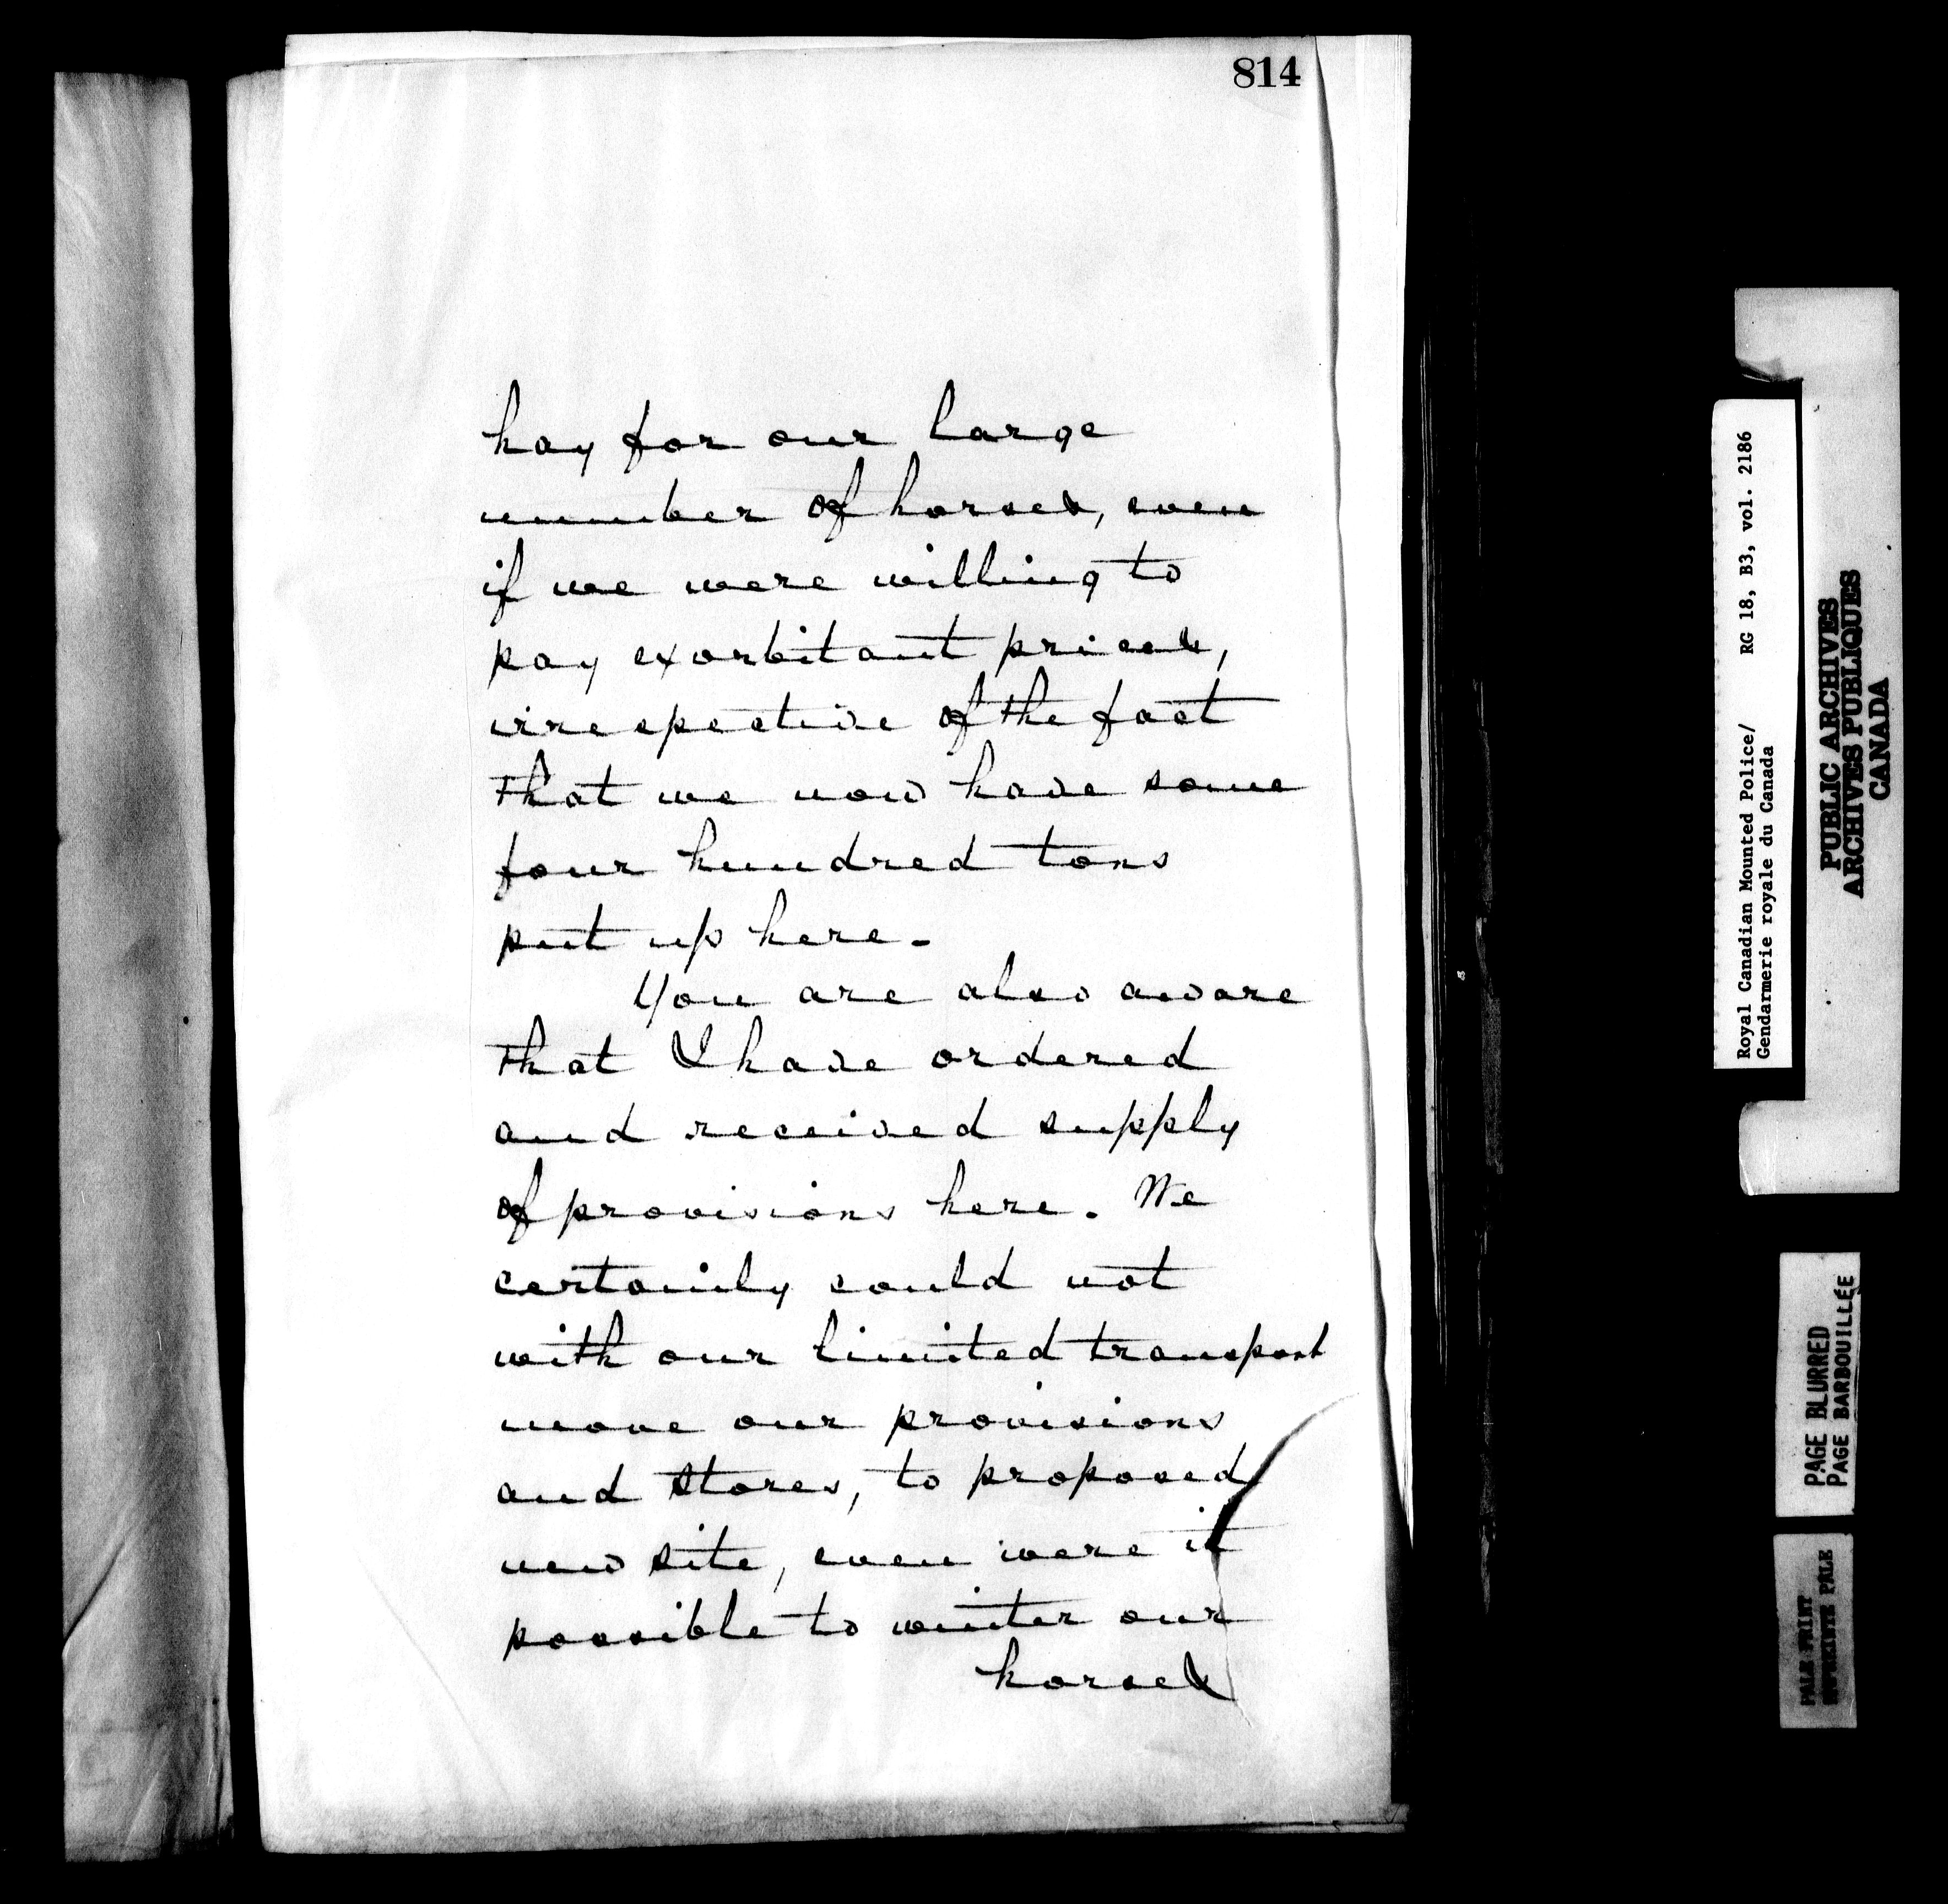 814
hay for our large
number of horses, even
if we were willing to
pay exorbitant prices,
irrespective of the fact
that we now have some
four hundred tons
put up here.
You are also aware
that I have ordered
and received supply
of provisions here. We
certainly could not
with our limited transport
move our provisions
and stores, to proposed
new site, even were it
possible to winter our
horses
Royal Canadian Mounted Police/ RG 18, B3, vol. 2186
Gendarmerie royale du Canada
PUBLIC ARCHIVES
ARCHIVES PUBLIQUES
CANADA
PAGE BLURRED
PAGE BARBOUILLÉE
PALE PRINT
EPREINTE PALE